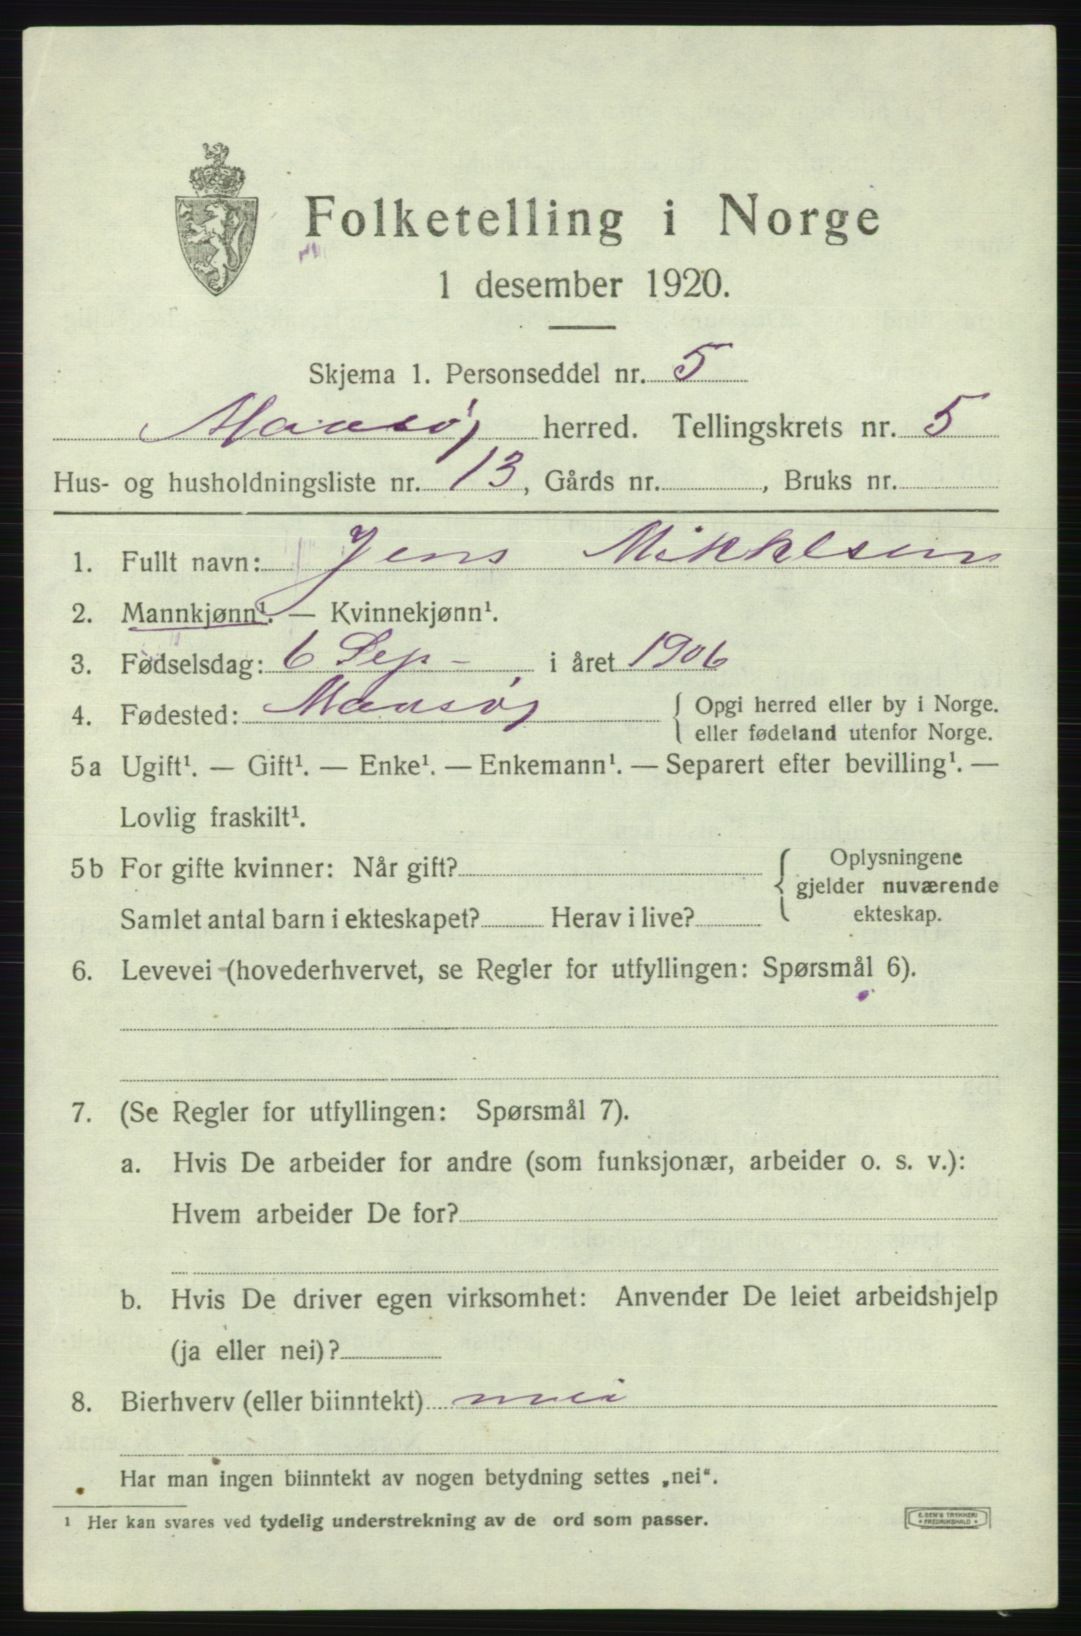 Folketelling i Norge
1 desember 1920.
Skjema 1. Personseddel nr. 5
Maasøy herred. Tellingskrets nr. 5
Hus- og husholdningsliste nr. 13, Gårds nr. , Bruks nr.
1. Fullt navn: Jens Mikkelsen
2. Mannkjønn¹. — Kvinnekjønn¹.
3. Fødselsdag: 6 Sep - i året 1906
4. Fødested: Maasøy { Opgi herred eller by i Norge.
eller fødeland utenfor Norge.
5 a Ugift¹. — Gift¹. — Enke¹. — Enkemann¹. — Separert efter bevilling¹. —
Lovlig fraskilt¹.
5 b For gifte kvinner: Når gift? { Oplysningene
gjelder nuværende
Samlet antal barn i ekteskapet? Herav i live? ekteskap.
6. Levevei (hovederhvervet, se Regler for utfyllingen: Spørsmål 6).
7. (Se Regler for utfyllingen: Spørsmål 7).
a. Hvis De arbeider for andre (som funksjonær, arbeider o. s. v.):
Hvem arbeider De for?
b. Hvis De driver egen virksomhet: Anvender De leiet arbeidshjelp
(ja eller nei)?
8. Bierhverv (eller biinntekt) nei
Har man ingen biinntekt av nogen betydning settes „nei“.
¹ Her kan svares ved tydelig understrekning av de ord som passer.
TRYKKERI
FREDRIKSHALD